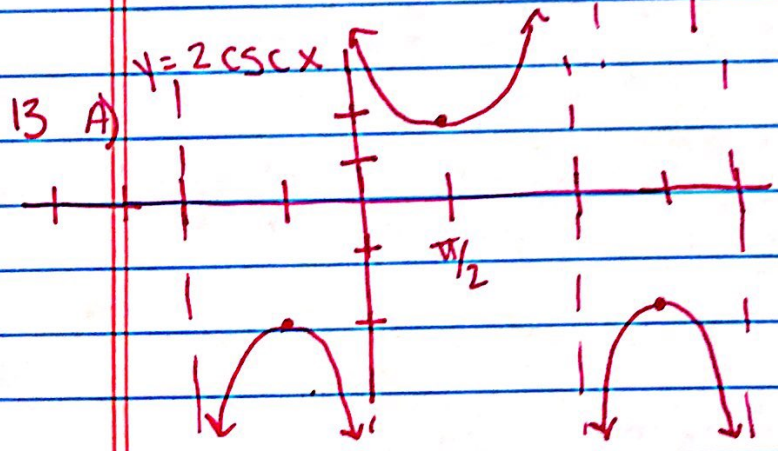 y = 2 csc x
13 A)
π/2